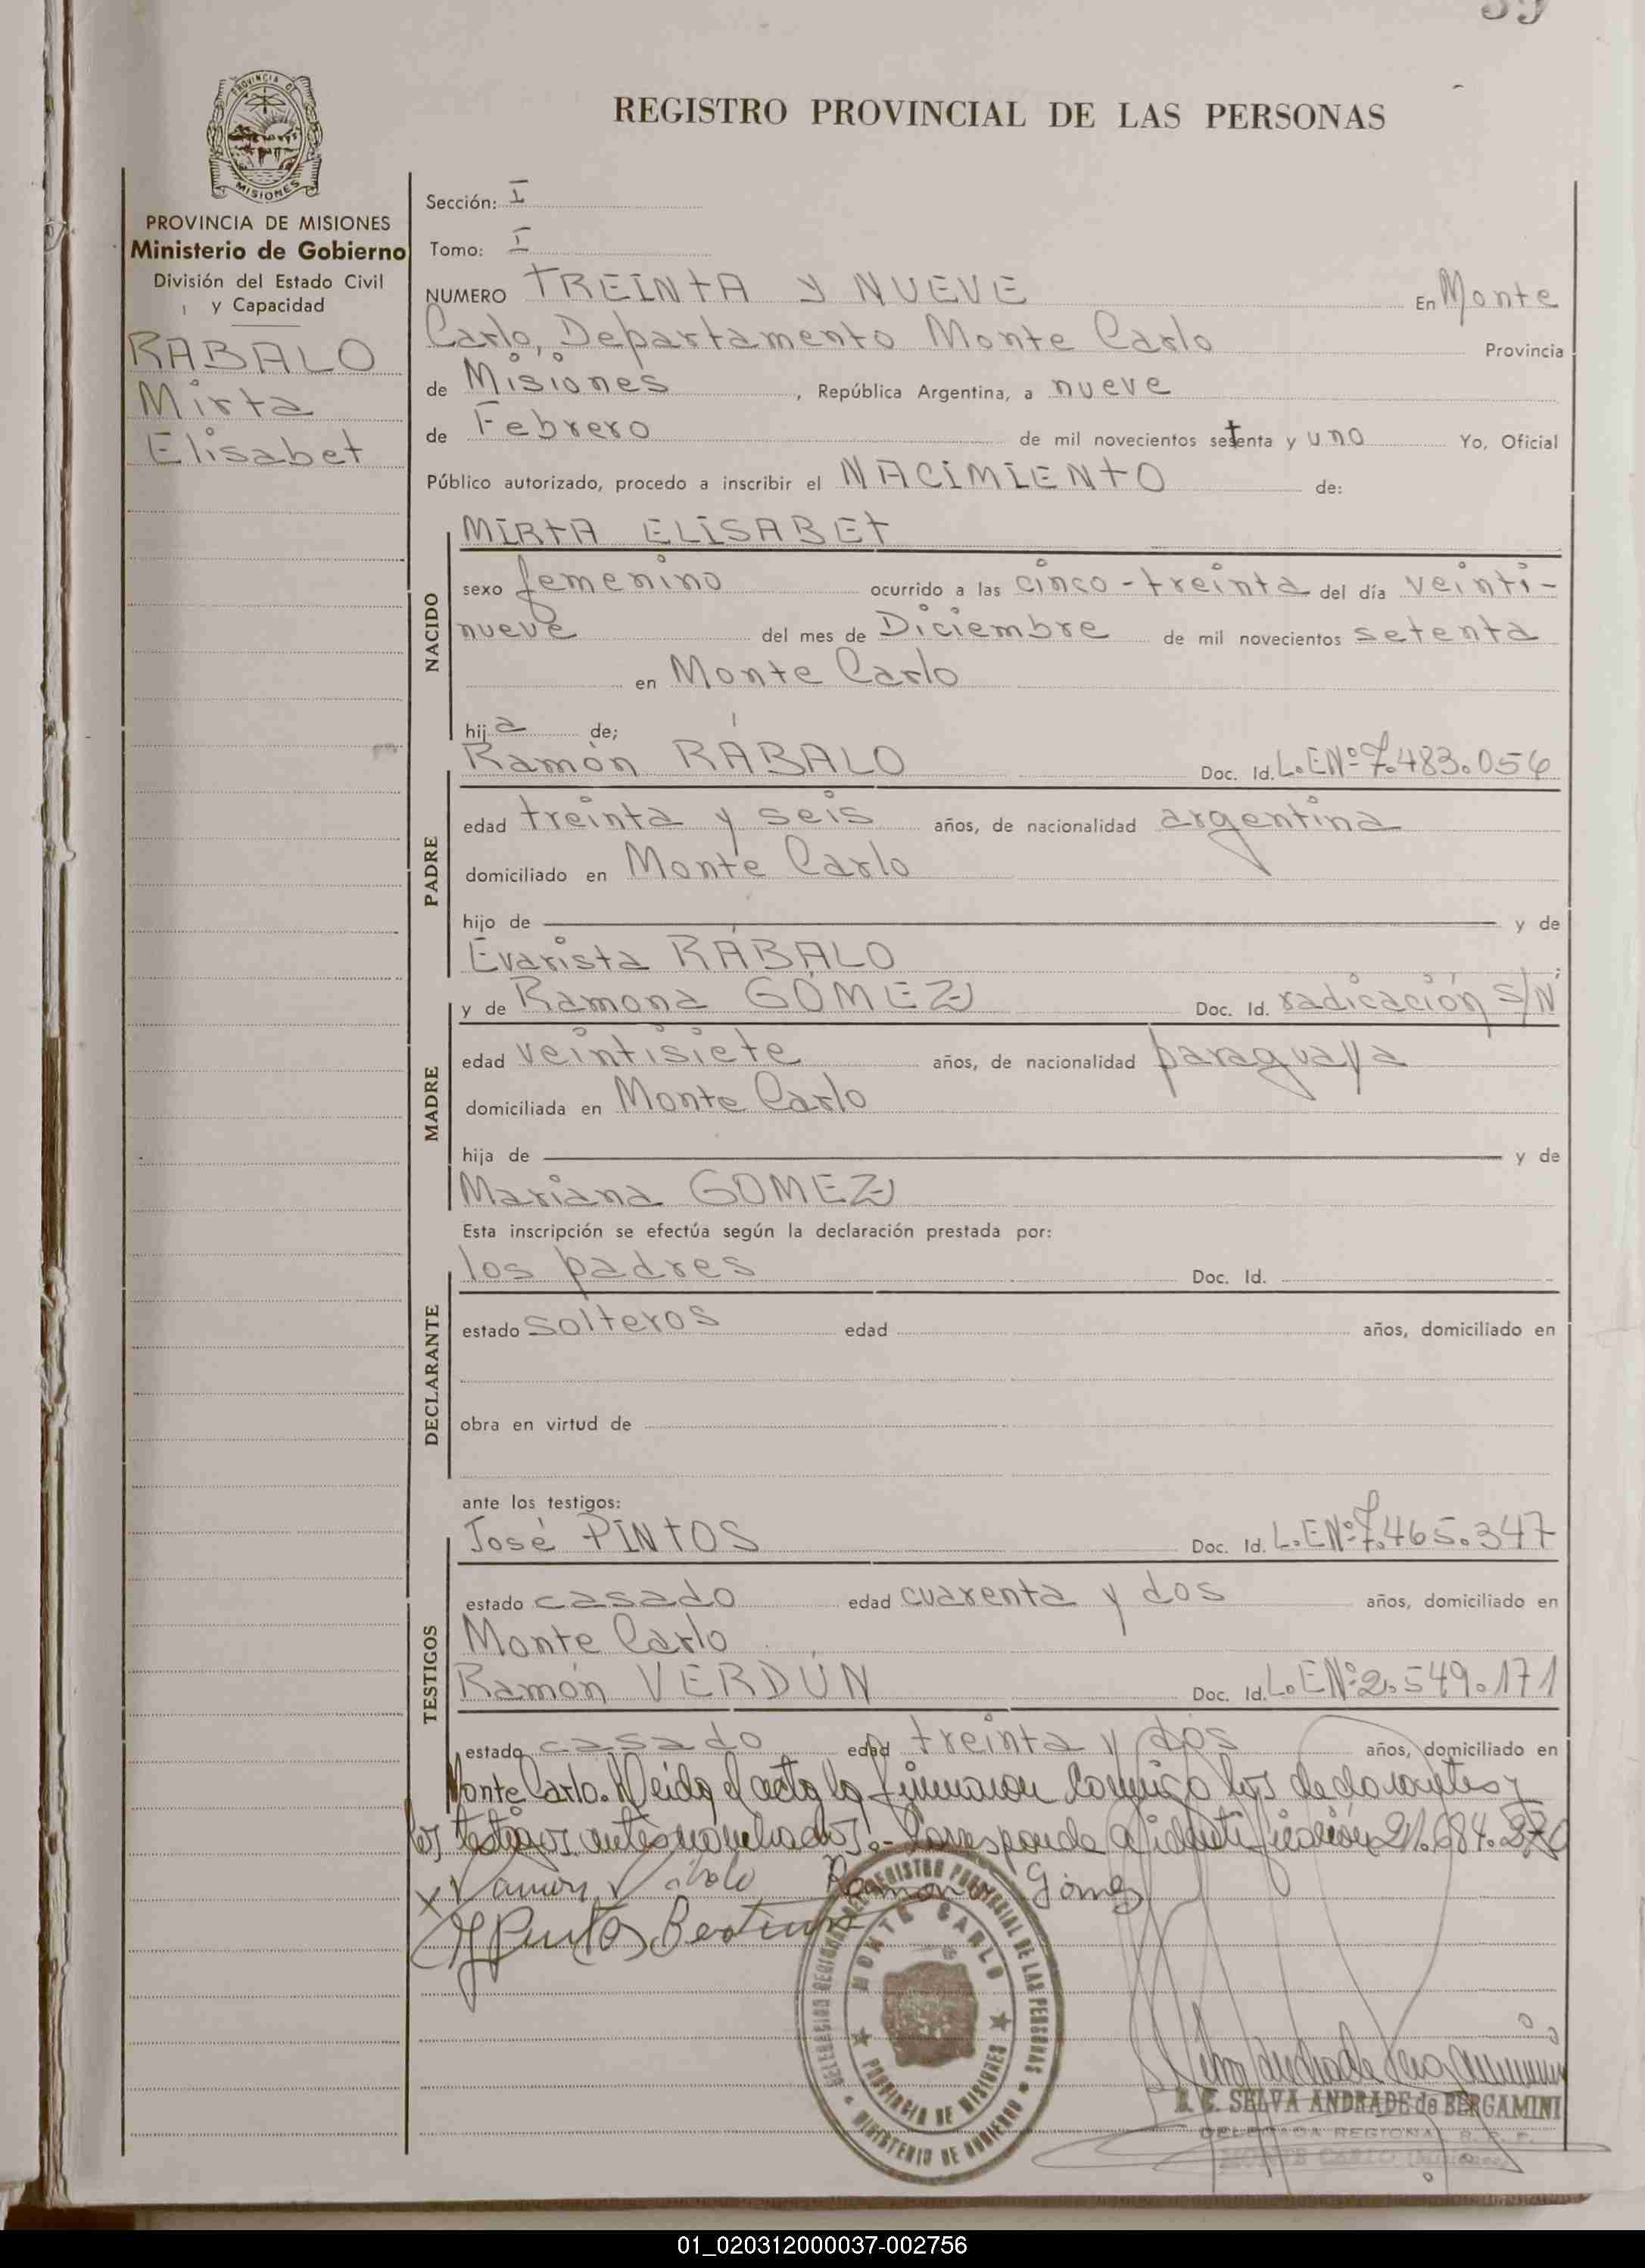 39
PROVINCIA DE
MISIONES
REGISTRO PROVINCIAL DE LAS PERSONAS
PROVINCIA DE MISIONES
Ministerio de Gobierno
División del Estado Civil
y Capacidad
RABALO
Mirta
Elisabet
Sección: I
Tomo: I
NUMERO TREINTA Y NUEVE En Monte
Carlo, Departamento Monte Carlo Provincia
de Misiones, República Argentina, a nueve
de Febrero de mil novecientos setenta y uno Yo, Oficial
Público autorizado, procedo a inscribir el NACIMIENTO de:
NACIDO
MIRTA ELISABET
sexo femenino ocurrido a las cinco-treinta del día veinti-
nueve del mes de Diciembre de mil novecientos setenta
en Monte Carlo
hija de;
PADRE
Ramón RÁBALO Doc. Id. L.EN° 7.483.056
edad treinta y seis años, de nacionalidad argentina
domiciliado en Monte Carlo
hijo de y de
Evarista RÁBALO
MADRE
y de Ramona GÓMEZ Doc. Id. radicación S/N
edad veintisiete años, de nacionalidad paraguaya
domiciliada en Monte Carlo
hija de y de
Mariana GOMEZ
Esta inscripción se efectúa según la declaración prestada por:
DECLARANTE
los padres Doc. Id.
estado solteros edad años, domiciliado en
obra en virtud de
ante los testigos:
TESTIGOS
José PINTOS Doc. Id. L.EN° 7.465.347
estado casado edad cuarenta y dos años, domiciliado en
Monte Carlo
Ramón VERDÚN Doc. Id. L.EN° 2.549.171
estado casado edad treinta y dos años, domiciliado en
Monte Carlo. Leída el acta la firmaron conmigo los declarantes y
los testigos antes nombrados.- Corresponde a identificación 21.684.370
Ramona Gómez
DELEGACION REGIONAL DEL REGISTRO PROVINCIAL DE LAS PERSONAS
MONTE CARLO
PROVINCIA DE MISIONES
MINISTERIO DE GOBIERNO
SELVA ANDRADE de BERGAMINI
DELEGADA REGIONAL R. P. P.
MONTE CARLO (Misiones)
01_020312000037-002756